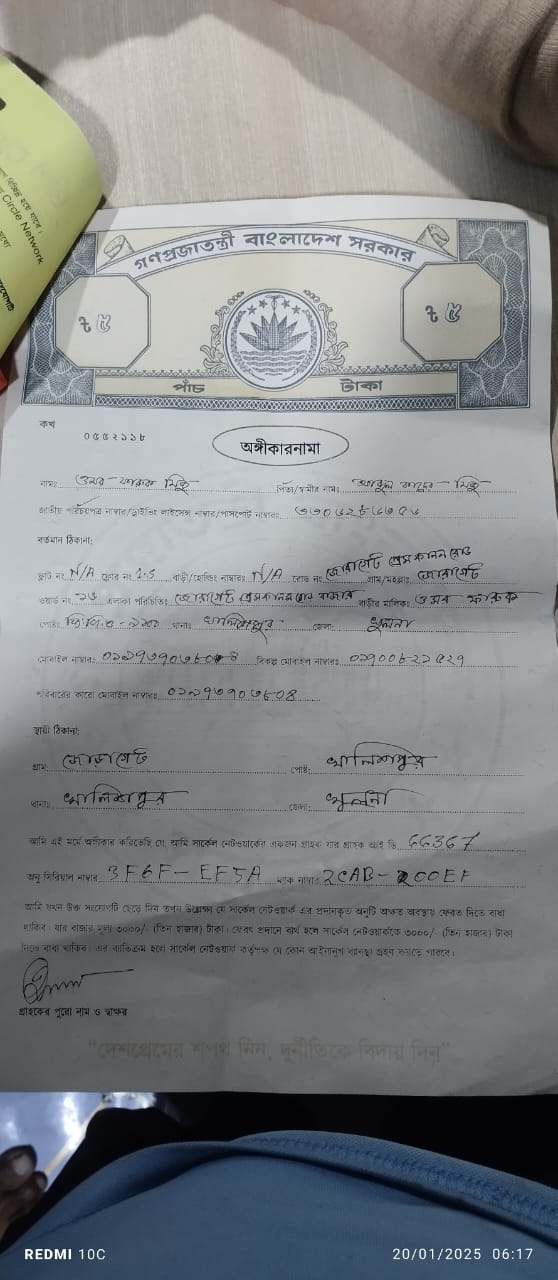 Circle Network
গণপ্রজাতন্ত্রী বাংলাদেশ সরকার
৳ ৫ ৳ ৫
পাঁচ টাকা
কখ
০৫৫২১১৮
অঙ্গীকারনামা
নাম: ওমর ফারুক মিন্টু পিতা/স্বামীর নাম: আবুল কাসেম মিন্টু
জাতীয় পরিচয়পত্র নাম্বার/ড্রাইভিং লাইসেন্স নাম্বার/পাসপোর্ট নাম্বার:
বর্তমান ঠিকানা:
ফ্লাট নং N/A ফ্লোর নং 1.5 বাড়ী/হোল্ডিং নাম্বার: N/A রোড নং জোরাগেট প্রেস কানন রোড গ্রাম/মহল্লা: জোরাগেট
ওয়ার্ড নং এলাকা পরিচিতি: জোরাগেট বাজার বাড়ীর মালিক: ওমর ফারুক
পোষ্ট: থানা: খালিশপুর জেলা: খুলনা
মোবাইল নাম্বার: বিকল্প মোবাইল নাম্বার:
পরিবারের কারো মোবাইল নাম্বার:
স্থায়ী ঠিকানা:
গ্রাম: জোড়াগেট পোষ্ট: খালিশপুর
থানা: খালিশপুর জেলা: খুলনা
আমি এই মর্মে অঙ্গীকার করিতেছি যে, আমি সার্কেল নেটওয়ার্কের একজন গ্রাহক যার গ্রাহক আই ডি 66367
অনু সিরিয়াল নাম্বার 3F6F-EF5A ম্যাক নাম্বার 2CAB-200EF
আমি যখন উক্ত সংযোগটি ছেড়ে দিব তখন উল্লেক্ষ্য যে সার্কেল নেটওয়ার্ক এর প্রদানকৃত অনুটি অক্ষত অবস্থায় ফেরত দিতে বাধ্য
থাকিব। যার বাজার মূল্য ৩০০০/- (তিন হাজার) টাকা। ফেরৎ প্রদানে ব্যর্থ হলে সার্কেল নেটওয়ার্ককে ৩০০০/- (তিন হাজার) টাকা
দিতে বাধ্য থাকিব। এর ব্যতিক্রম হলে সার্কেল নেটওয়ার্ক কর্তৃপক্ষ যে কোন আইনানুগ ব্যবস্থা গ্রহণ করতে পারবে।
গ্রাহকের পুরো নাম ও স্বাক্ষর
"দেশপ্রেমের শপথ নিন, দুর্নীতিকে বিদায় দিন"
REDMI 10C 20/01/2025 06:17